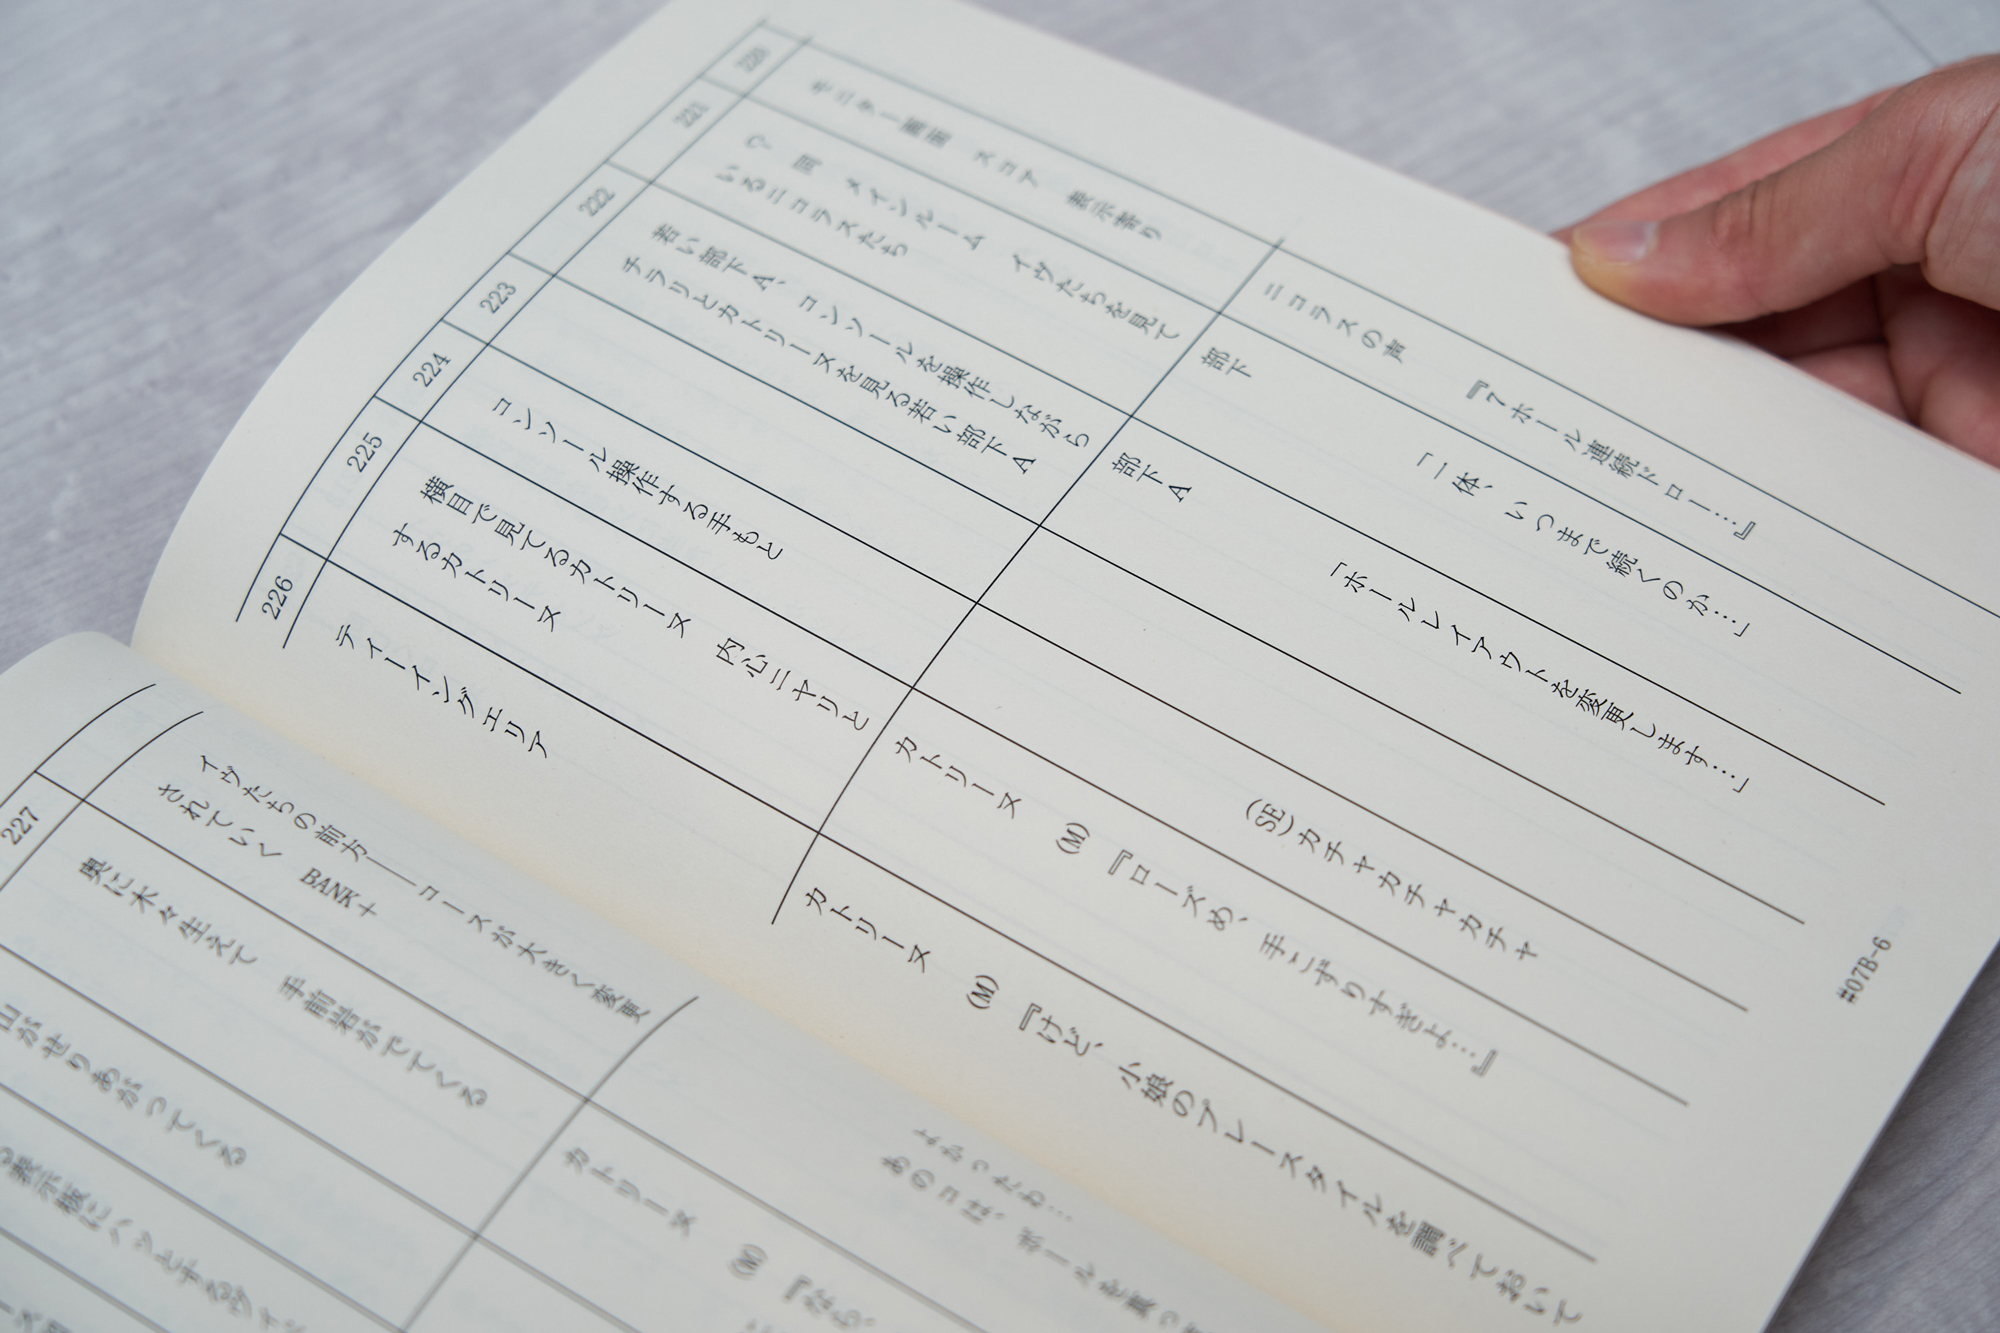 220
モニター画面　スコア　表示寄り
ニコラスの声　『7ホール連続ドロー…』
221
♡　同　メインルーム　イヴたちを見て
いるニコラスたち
部下　「一体、いつまで続くのか…」
222
若い部下A、コンソールを操作しながら
チラリとカトリーヌを見る若い部下A
部下A　「ホールレイアウトを変更します…」
223
コンソール操作する手もと
(SE)カチャカチャカチャ
224
横目で見てるカトリーヌ　内心ニヤリと
するカトリーヌ
カトリーヌ　(M)『ローズめ、手こずりすぎよ…』
225
ティーイングエリア
カトリーヌ　(M)『けど、小娘のプレースタイルを調べておいて
226
#07B-6
よかったわ…
あのコは、ボールを真っ
イヴたちの前方――コースが大きく変更
されていく　BANK+
227
奥に木々生えて　手前岩がでてくる
カトリーヌ　(M)『なら、
山がせりあがってくる
表示板にハッとするヴィ